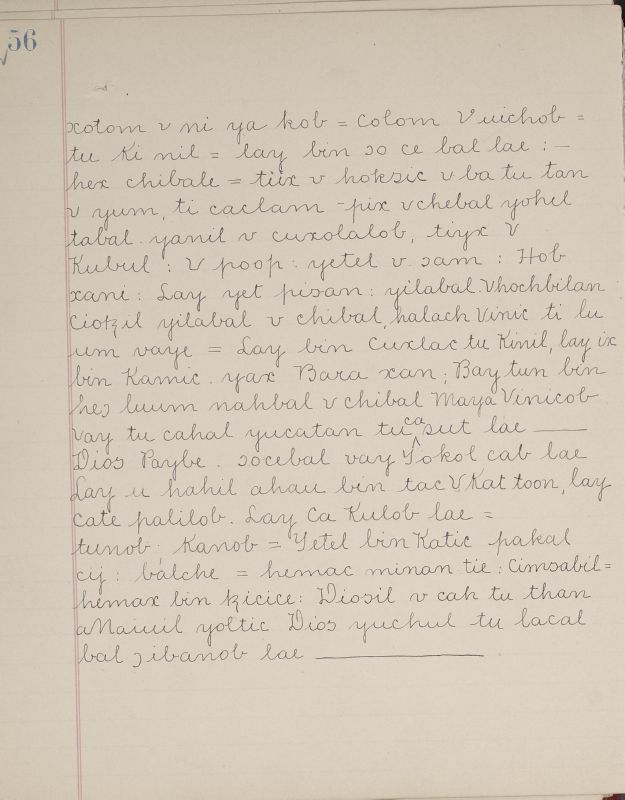 56
xotom v ni ya kob = Colom Vuichob =
tu Ki nil = lay bin ɔo ce bal lae : —
hex chibale = tiix v hokzic v ba tu tan
v yum, ti caclam - pix vchebal yohel
tabal . yanil v cuxolalob, tiyx V
Kubul : V poop : yetel v . ɔam : Hob
xani : Lay yet pisan : yilabal . Vhochbilan
Ciotzil yilabal v chibal, halach Vinic ti lu
um vaye = Lay bin Cuxlac tu Kinil, lay ix
bin Kamic . yax Bara xan ; Bay tun bin
heɔ luum nahbal v chibal Maya Vinicob
vay tu cahal yucatan tu ca sut lae —
Dios Paybe . ɔocebal vay Yokol cab lae
Lay u hahil ahau bin tac V Kat toon, lay
cate palilob . Lay Ca Kulob lae =
tunob : Kanob = Yetel bin Katic pakal
cij : bálche = hemac minan tie : Cimsabil =
hemax bin tzicice : Diosil v cah tu than
aNaiuil yoltic Dios yuchul tu lacal
bal ɔibanob lae —